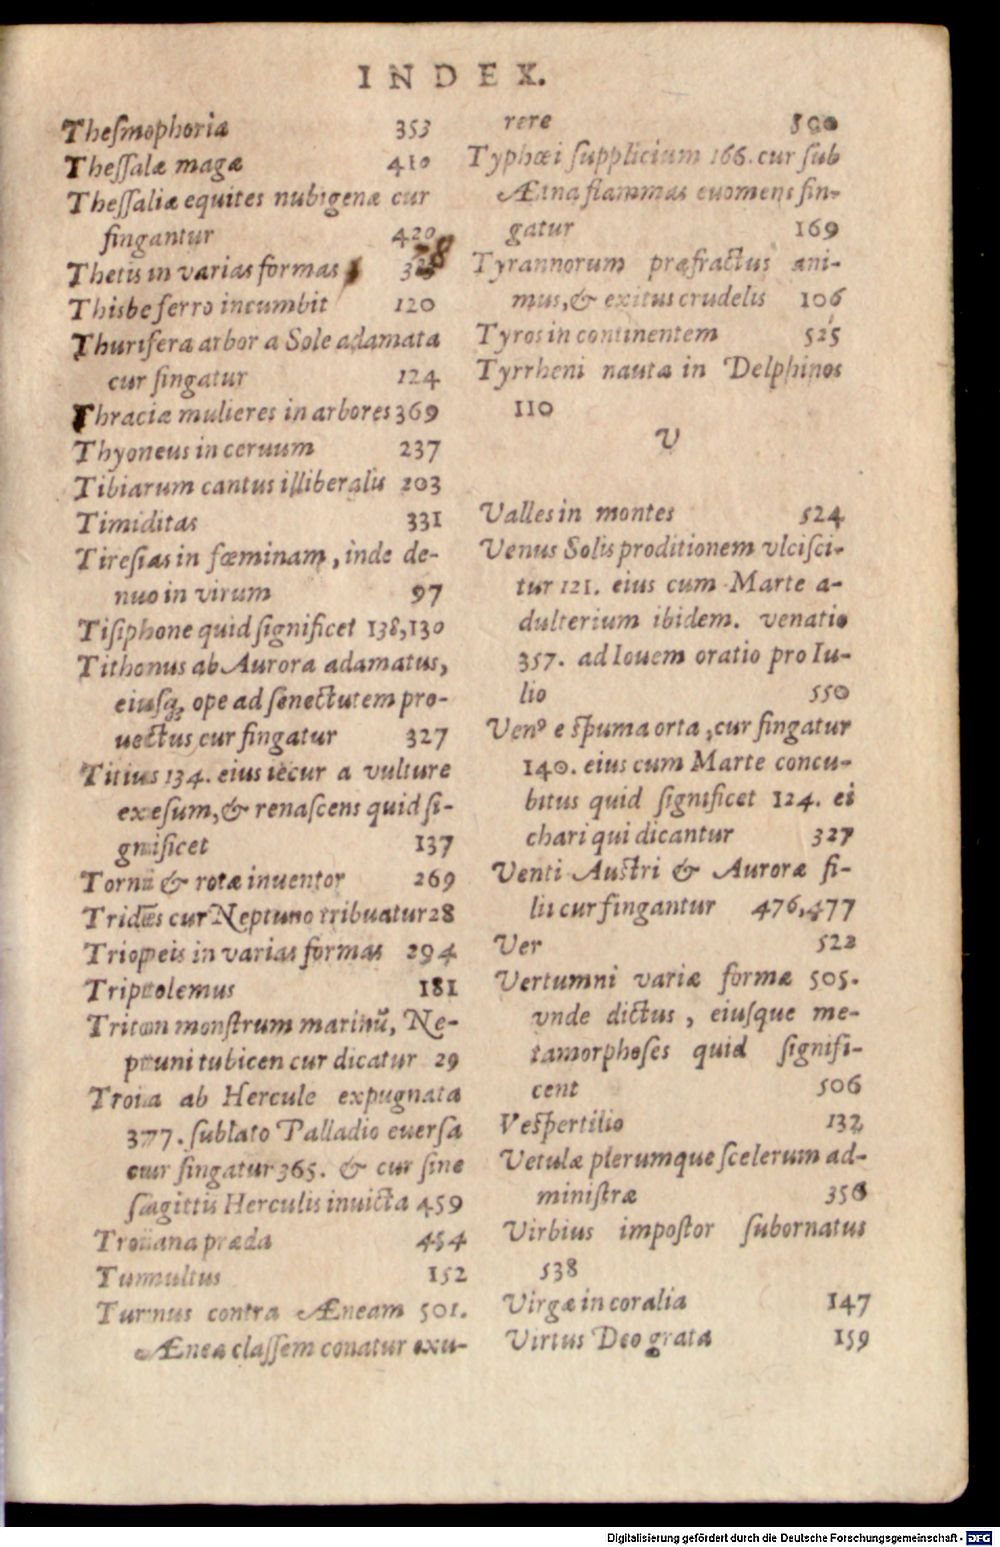 INDEX.
Theſmophoria 353
Theſſalæ magæ 410
Theſſaliæ equites nubigenæ cur
fingantur 420
Thetis in varias formas
Thisbe ferro incumbit 120
Thurifera arbor a Sole adamata
cur fingatur 124
Thraciæ mulieres in arbores 369
Thyoneus in ceruum 237
Tibiarum cantus illiberalis 203
Timiditas 331
Tireſias in fœminam, inde de-
nuo in virum 97
Tiſiphone quid ſignificet 138,130
Tithonus ab Aurora adamatus,
eiuſq; ope ad ſenectutem pro-
uectus cur fingatur 327
Titius 134. eius iecur a vulture
exeſum, & renaſcens quid ſi-
gnificet 137
Torni & rotæ inventor 269
Tridēs cur Neptuno tribuatur 28
Triopeis in varias formas 294
Triptolemus 181
Triton monſtrum marinū, Ne-
ptuni tubicen cur dicatur 29
Troia ab Hercule expugnata
377. ſublato Palladio euerſa
cur fingatur 365. & cur ſine
ſagittis Herculis inuicta 459
Troiana præda 454
Tumultus 152
Turnus contra Æneam 501.
Æneæ claſſem conatur exu-
rere 500
Typhœi ſupplicium 166. cur ſub
Ætna flammas euomens fin-
gatur 169
Tyrannorum præfractus ani-
mus, & exitus crudelis 106
Tyros in continentem 525
Tyrrheni nautæ in Delphinos
110
V
Valles in montes 524
Venus Solis proditionem vlciſci-
tur 121. eius cum Marte a-
dulterium ibidem. venatio
357. ad Iouem oratio pro Iu-
lio 550
Venꝰ e ſpuma orta, cur fingatur
140. eius cum Marte concu-
bitus quid ſignificet 124. ei
chari qui dicantur 327
Venti Auſtri & Auroræ fi-
lii cur fingantur 476,477
Ver 522
Vertumni variæ formæ 505.
vnde dictus, eiuſque me-
tamorphoſes quid ſignifi-
cent 506
Veſpertilio 132
Vetulæ plerumque ſcelerum ad-
miniſtræ 356
Virbius impoſtor ſubornatus
538
Virgæ in coralia 147
Virtus Deo grata 159
Digitalisierung gefördert durch die Deutsche Forschungsgemeinschaft - DFG